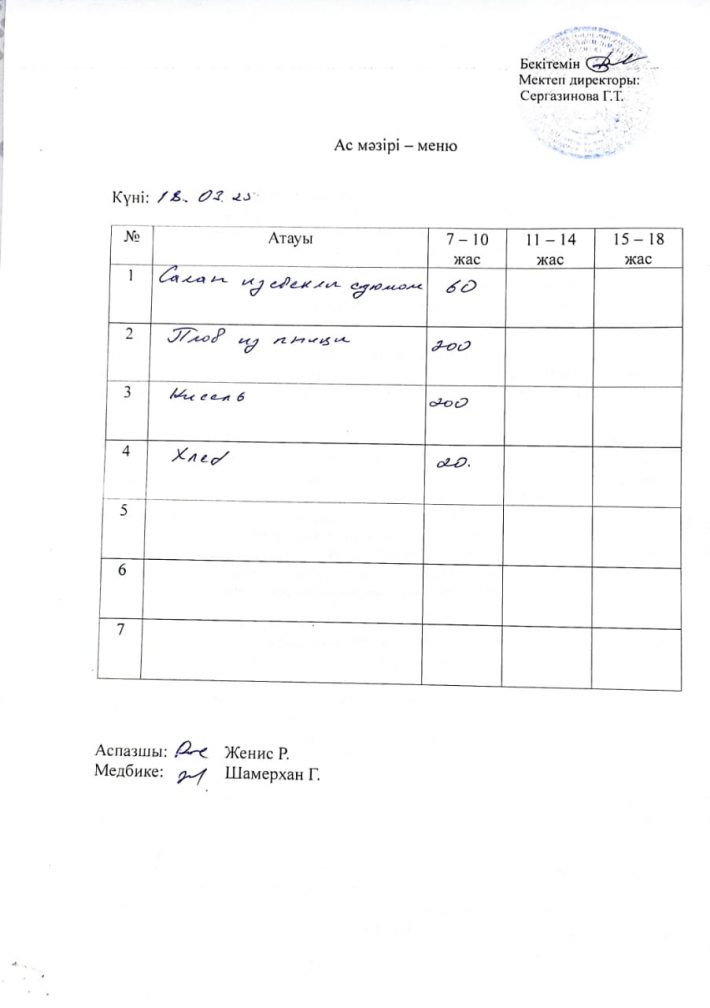 Бекітемін
Мектеп директоры:
Сергазинова Г.Т.
Ас мәзірі – меню
Күні: 18. 03. 25
№ Атауы 7 – 10 жас 11 – 14 жас 15 – 18 жас
1 Салат из свеклы с изюмом 60
2 Плов из птицы 200
3 Кисель 200
4 Хлеб 20.
5
6
7
Аспазшы: Женис Р.
Медбике: Шамерхан Г.